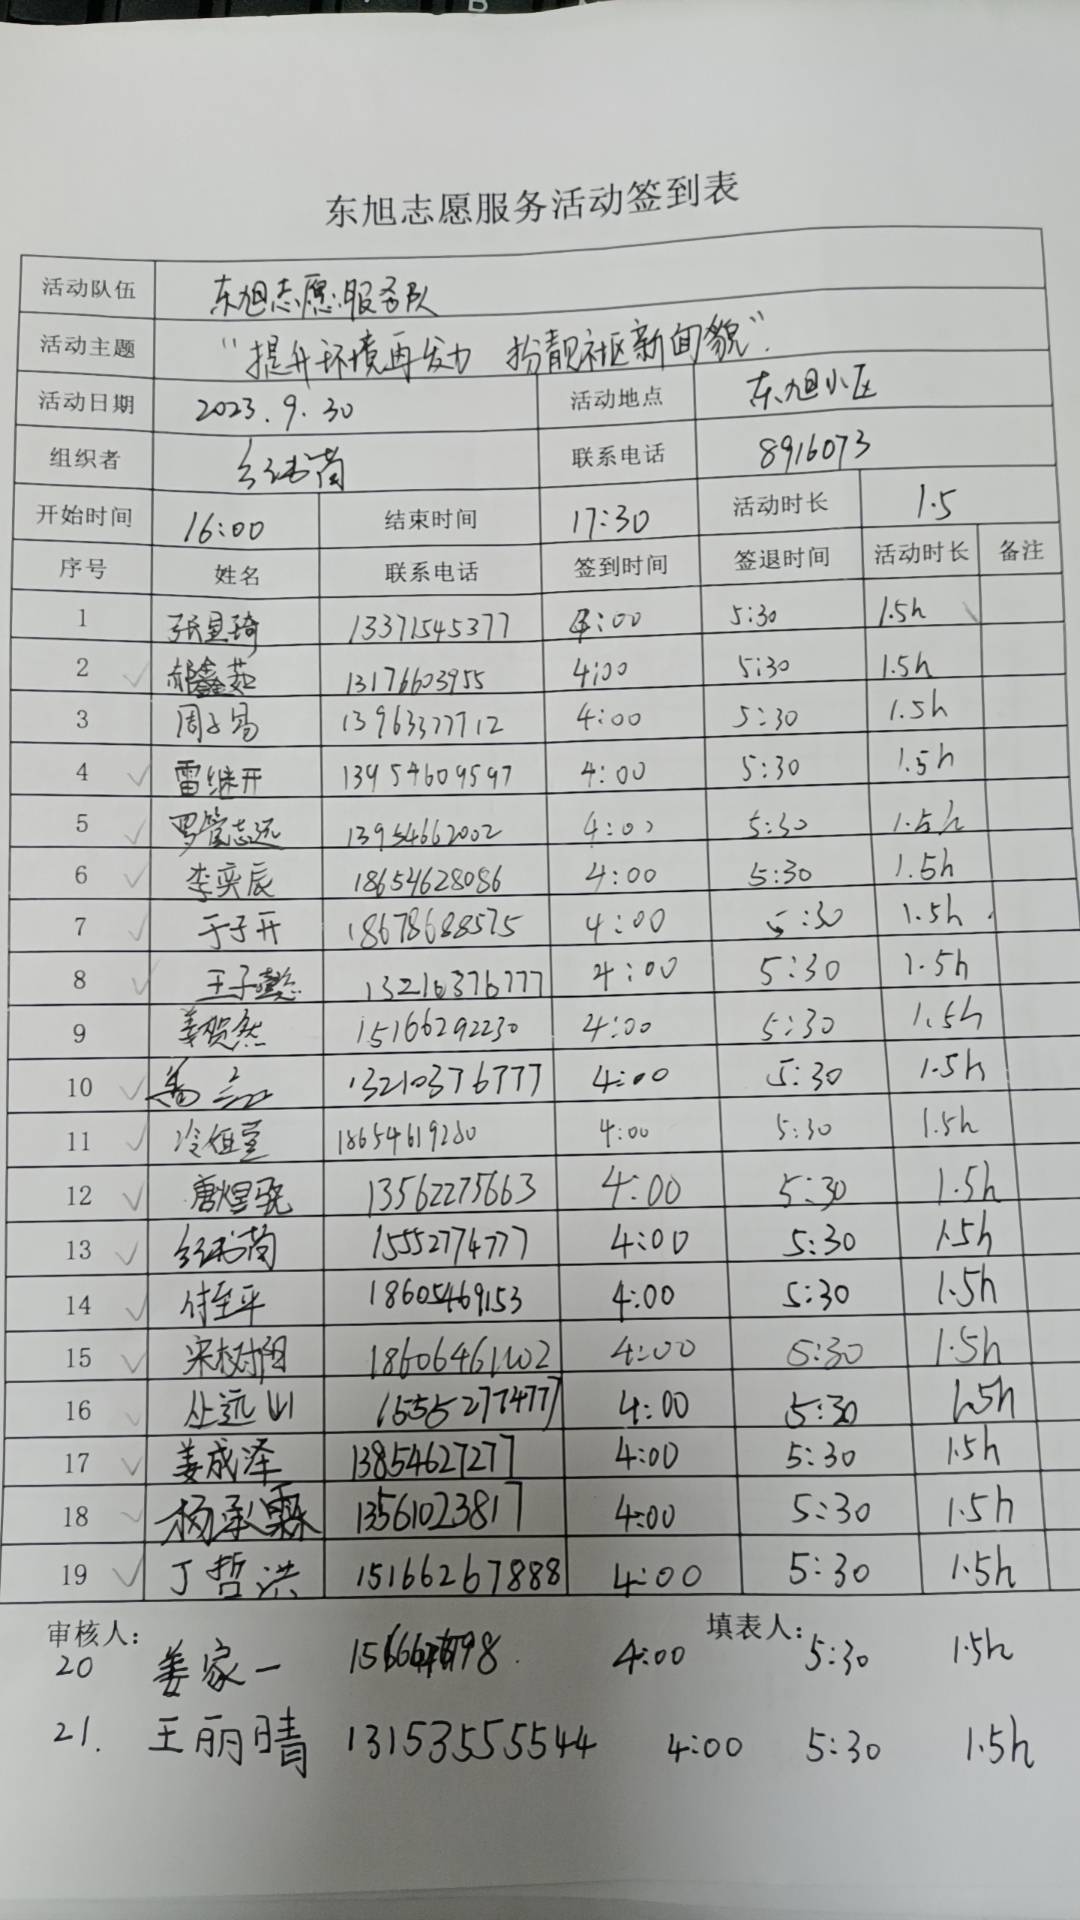 东旭志愿服务活动签到表
活动队伍 东旭志愿服务队
活动主题 “提升环境再发力 扮靓社区新面貌”.
活动日期 2023.9.30 活动地点 东旭小区
组织者 联系电话 8916073
开始时间 16:00 结束时间 17:30 活动时长 1.5
序号 姓名 联系电话 签到时间 签退时间 活动时长 备注
1 13371545377 4:00 5:30 1.5h
2 郝鑫茹 13176603955 4:00 5:30 1.5h
3 周子易 13963377712 4:00 5:30 1.5h
4 雷继开 13954609597 4:00 5:30 1.5h
5 罗管志远 13954662002 4:00 5:30 1.5h
6 李奕辰 18654628086 4:00 5:30 1.5h
7 于子开 18678688575 4:00 5:30 1.5h
8 王子懿 13210376777 4:00 5:30 1.5h
9 姜贺然 15166292230 4:00 5:30 1.5h
10 13210376777 4:00 5:30 1.5h
11 18654619280 4:00 5:30 1.5h
12 唐煜骁 13562275663 4:00 5:30 1.5h
13 15552774777 4:00 5:30 1.5h
14 付至平 18605469153 4:00 5:30 1.5h
15 宋树阳 18606461202 4:00 5:30 1.5h
16 丛远山 15552774777 4:00 5:30 1.5h
17 姜成泽 13854627277 4:00 5:30 1.5h
18 杨承霖 13561023817 4:00 5:30 1.5h
19 丁哲洪 15166267888 4:00 5:30 1.5h
审核人: 填表人:
20 姜家一 4:00 5:30 1.5h
21. 王丽晴 13153555544 4:00 5:30 1.5h